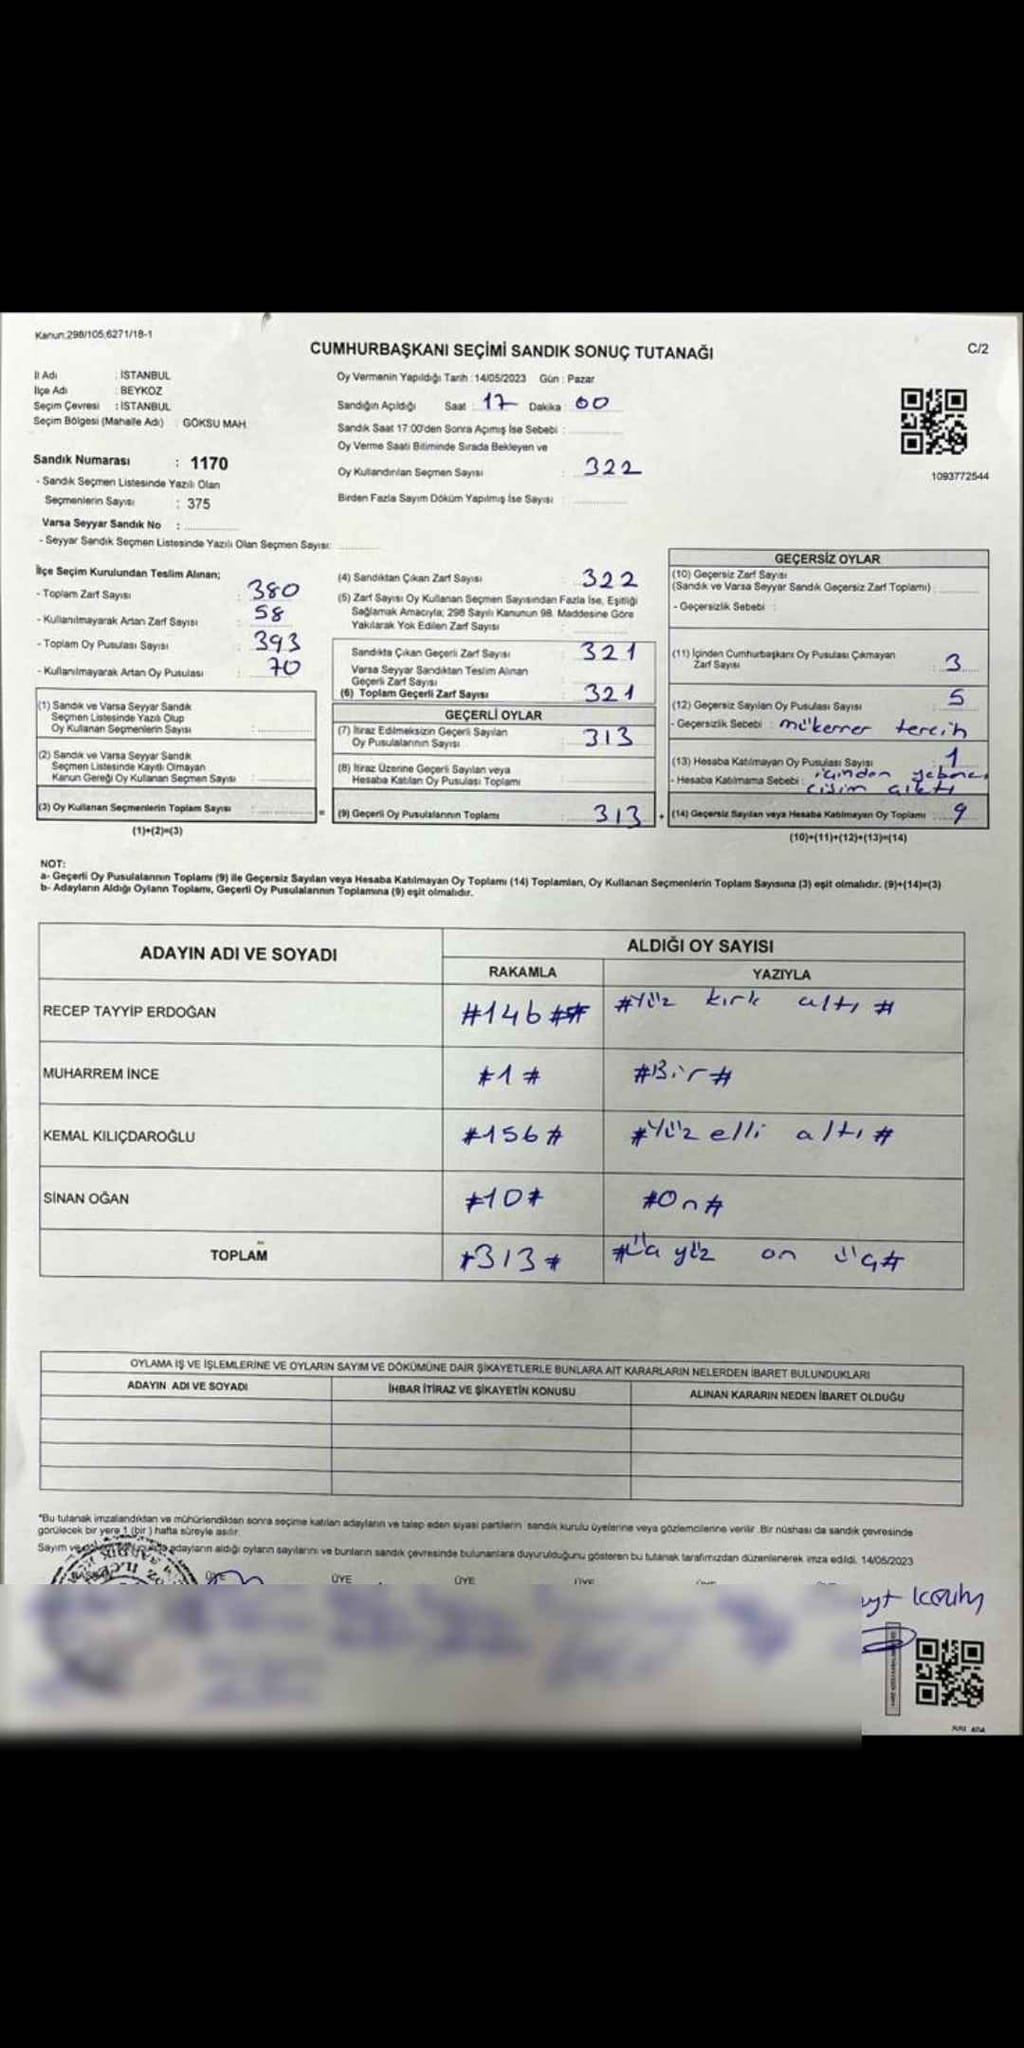 Kanun:298/105,6271/18-1
CUMHURBAŞKANI SEÇİMİ SANDIK SONUÇ TUTANAĞI
C/2
İl Adı : İSTANBUL
İlçe Adı : BEYKOZ
Seçim Çevresi : İSTANBUL
Seçim Bölgesi (Mahalle Adı) : GÖKSU MAH.
Sandık Numarası : 1170
- Sandık Seçmen Listesinde Yazılı Olan
Seçmenlerin Sayısı : 375
Varsa Seyyar Sandık No :
- Seyyar Sandık Seçmen Listesinde Yazılı Olan Seçmen Sayısı:
Oy Vermenin Yapıldığı Tarih : 14/05/2023 Gün : Pazar
Sandığın Açıldığı Saat : 17 Dakika : 00
Sandık Saat 17:00'den Sonra Açımış İse Sebebi :
Oy Verme Saati Bitiminde Sırada Bekleyen ve
Oy Kullandırılan Seçmen Sayısı : 322
Birden Fazla Sayım Döküm Yapılmış İse Sayısı :
1093772544
İlçe Seçim Kurulundan Teslim Alınan;
- Toplam Zarf Sayısı : 380
- Kullanılmayarak Artan Zarf Sayısı : 58
- Toplam Oy Pusulası Sayısı : 393
- Kullanılmayarak Artan Oy Pusulası : 70
(1) Sandık ve Varsa Seyyar Sandık
Seçmen Listesinde Yazılı Olup
Oy Kullanan Seçmenlerin Sayısı :
(2) Sandık ve Varsa Seyyar Sandık
Seçmen Listesinde Kayıtlı Olmayan
Kanun Gereği Oy Kullanan Seçmen Sayısı :
(3) Oy Kullanan Seçmenlerin Toplam Sayısı :
(1)+(2)=(3)
(4) Sandıktan Çıkan Zarf Sayısı : 322
(5) Zarf Sayısı Oy Kullanan Seçmen Sayısından Fazla İse, Eşitliği
Sağlamak Amacıyla; 298 Sayılı Kanunun 98. Maddesine Göre
Yakılarak Yok Edilen Zarf Sayısı :
Sandıkta Çıkan Geçerli Zarf Sayısı : 321
Varsa Seyyar Sandıktan Teslim Alınan
Geçerli Zarf Sayısı :
(6) Toplam Geçerli Zarf Sayısı : 321
GEÇERLİ OYLAR
(7) İtiraz Edilmeksizin Geçerli Sayılan
Oy Pusulalarının Sayısı : 313
(8) İtiraz Üzerine Geçerli Sayılan veya
Hesaba Katılan Oy Pusulası Toplamı :
= (9) Geçerli Oy Pusulalarının Toplamı : 313 +
GEÇERSİZ OYLAR
(10) Geçersiz Zarf Sayısı
(Sandık ve Varsa Seyyar Sandık Geçersiz Zarf Toplamı) :
- Geçersizlik Sebebi :
(11) İçinden Cumhurbaşkanı Oy Pusulası Çıkmayan
Zarf Sayısı : 3
(12) Geçersiz Sayılan Oy Pusulası Sayısı : 5
- Geçersizlik Sebebi : mükerrer tercih
(13) Hesaba Katılmayan Oy Pusulası Sayısı : 1
- Hesaba Katılmama Sebebi : içinden yabancı
cisim çıktı
(14) Geçersiz Sayılan veya Hesaba Katılmayan Oy Toplamı : 9
(10)+(11)+(12)+(13)=(14)
NOT:
a- Geçerli Oy Pusulalarının Toplamı (9) ile Geçersiz Sayılan veya Hesaba Katılmayan Oy Toplamı (14) Toplamları, Oy Kullanan Seçmenlerin Toplam Sayısına (3) eşit olmalıdır. (9)+(14)=(3)
b- Adayların Aldığı Oyların Toplamı, Geçerli Oy Pusulalarının Toplamına (9) eşit olmalıdır.
ADAYIN ADI VE SOYADI
ALDIĞI OY SAYISI
RAKAMLA YAZIYLA
RECEP TAYYİP ERDOĞAN #146## #Yüz kırk altı#
MUHARREM İNCE #1# #Bir#
KEMAL KILIÇDAROĞLU #156# #Yüz elli altı#
SİNAN OĞAN #10# #On#
TOPLAM #313# #Üç yüz on üç#
OYLAMA İŞ VE İŞLEMLERİNE VE OYLARIN SAYIM VE DÖKÜMÜNE DAİR ŞİKAYETLERLE BUNLARA AİT KARARLARIN NELERDEN İBARET BULUNDUKLARI
ADAYIN ADI VE SOYADI İHBAR İTİRAZ VE ŞİKAYETİN KONUSU ALINAN KARARIN NEDEN İBARET OLDUĞU
*Bu tutanak imzalandıktan ve mühürlendikten sonra seçime katılan adayların ve talep eden siyasi partilerin sandık kurulu üyelerine veya gözlemcilerine verilir. Bir nüshası da sandık çevresinde
görülecek bir yere 1 (bir) hafta süreyle asılır.
Sayım ve adayların aldığı oyların sayılarını ve bunların sandık çevresinde bulunanlara duyurulduğunu gösteren bu tutanak tarafımızdan düzenlenerek imza edildi. 14/05/2023
BAŞKAN ÜYE ÜYE ÜYE ÜYE